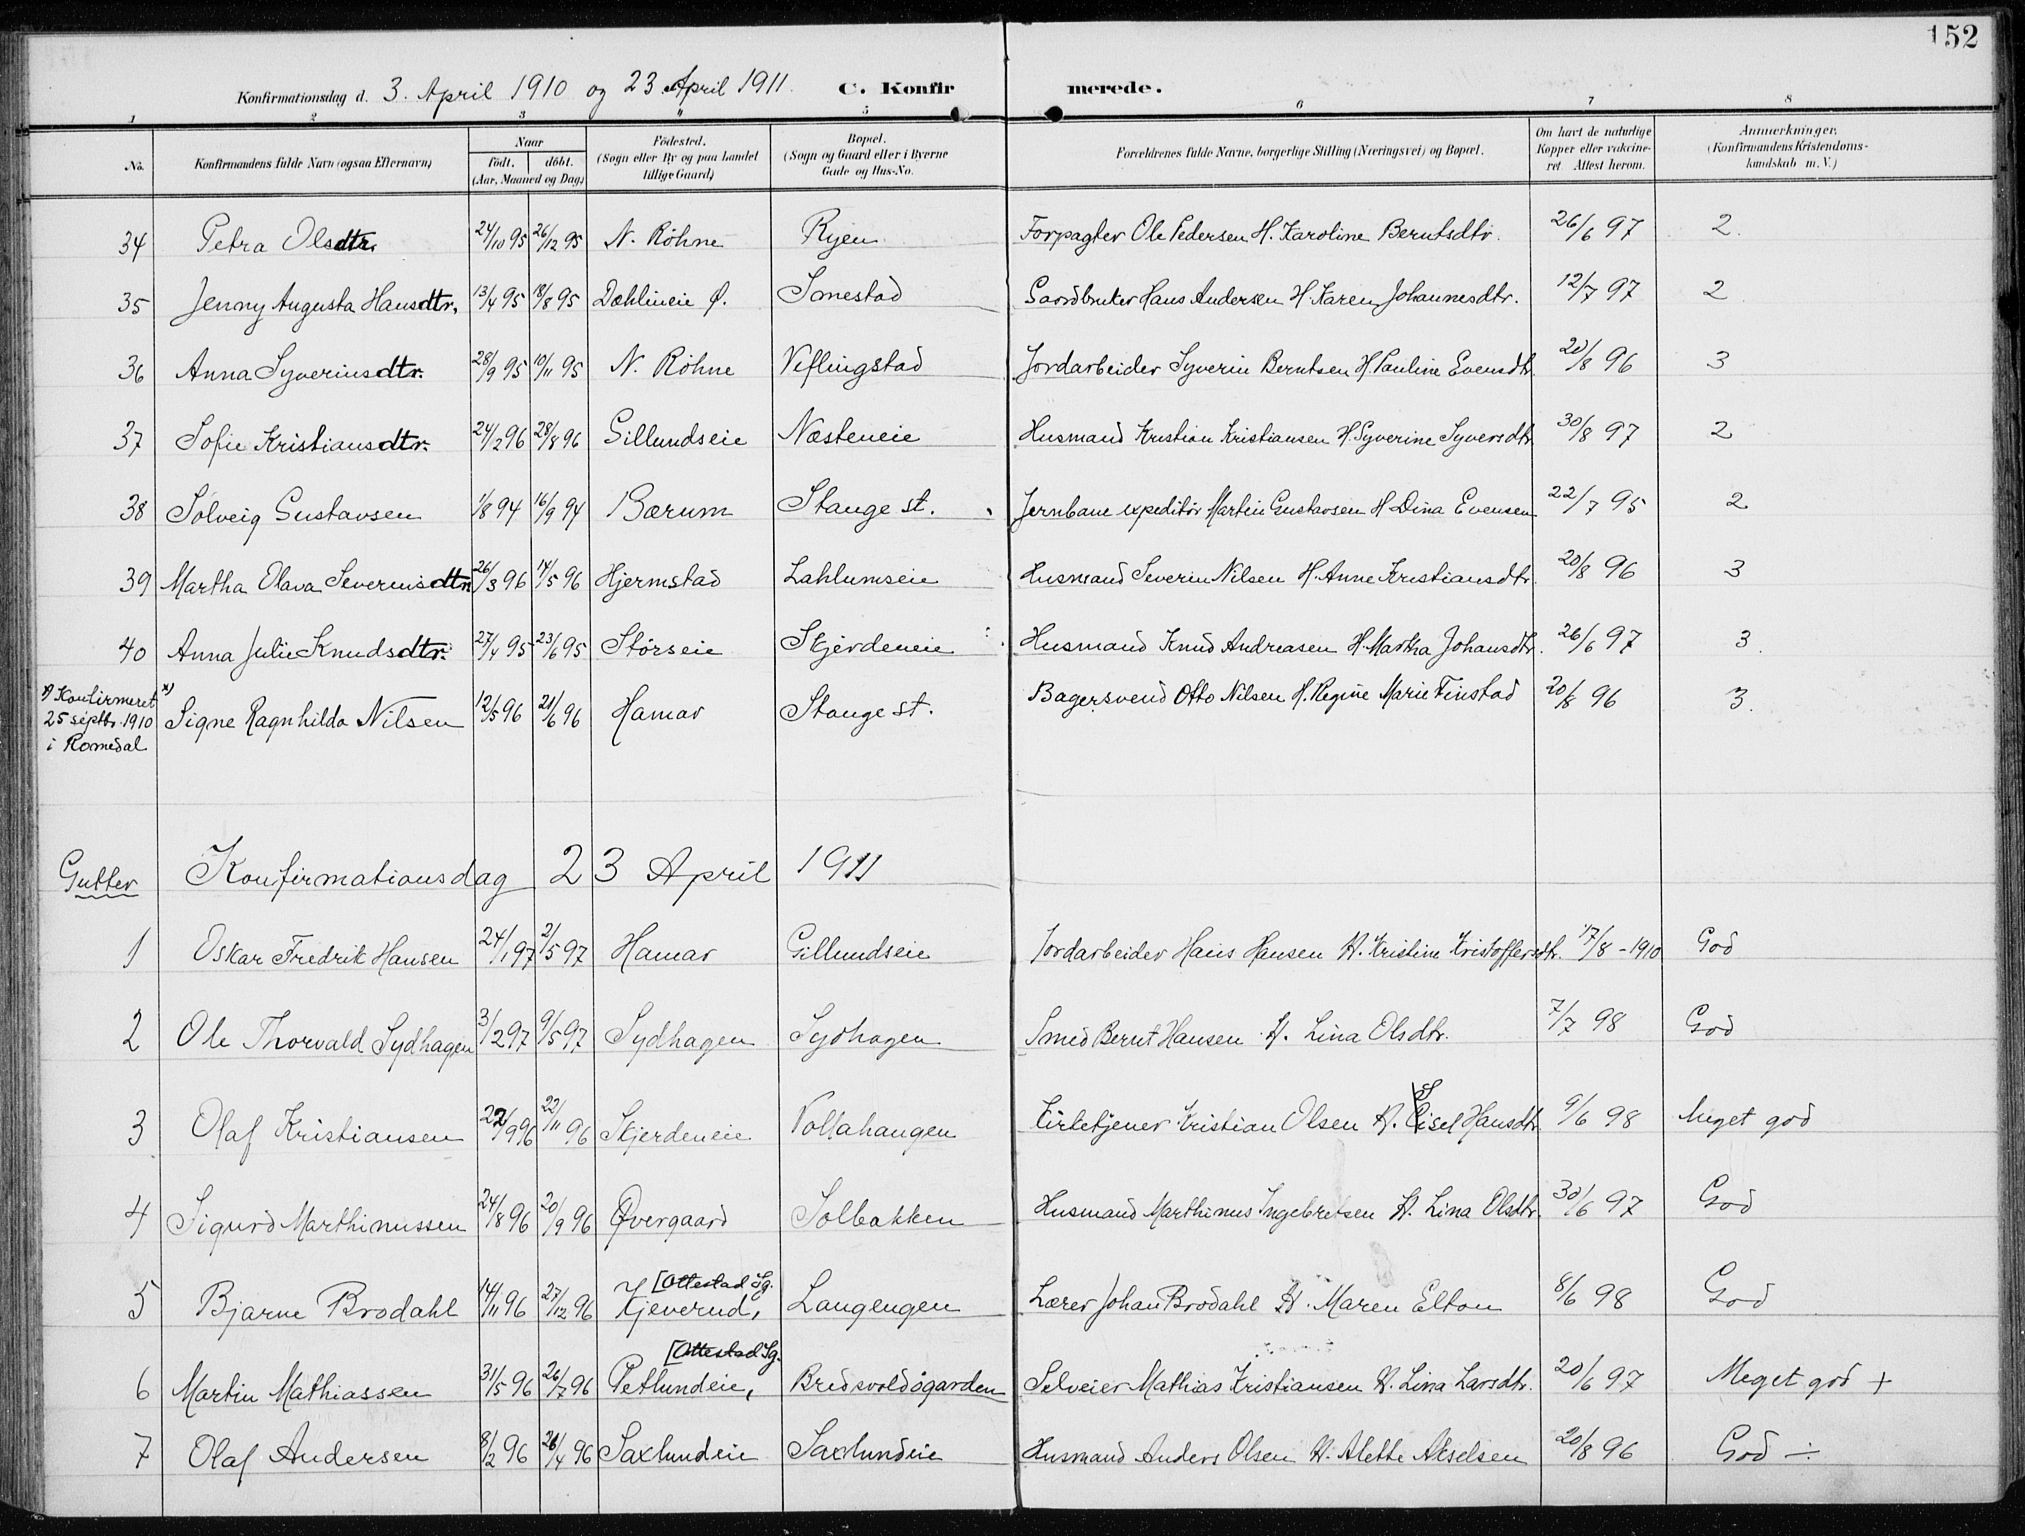 152
Konfirmationsdag d. 3. April 1910 og 23 April 1911. C. Konfirmerede.
1 2 3 4 5 6 7 8
No. Konfirmandens fulde Navn (ogsaa Efternavn) Naar født. døbt. (Aar, Maaned og Dag) Fødested. (Sogn eller By og paa Landet tillige Gaard) Bopæl. (Sogn og Gaard eller i Byerne Gade og Hus-No. Forældrenes fulde Navne, borgerlige Stilling (Næringsvei) og Bopæl. Om havt de naturlige Kopper eller vakcineret. Attest herom. Anmærkninger. (Konfirmandens Kristendomskundskab m. V.)
34 Petra Olsdtr. 24/10 95 26/12 95 N. Röhne Ryen Forpagter Ole Pedersen H. Karoline Berntsdtr. 26/6 97 2.
35 Jenny Augusta Hansdtr. 13/4 95 18/8 95 Dæhlineie Ø. Smestad Gaardbruker Hans Andersen H. Karen Johannesdtr. 12/7 97 2
36 Anna Syverinsdtr. 28/9 95 10/11 95 N. Röhne Veflingstad Jordarbeider Syverin Berntsen H. Pauline Evensdtr. 20/8 96 3
37 Sofie Kristiansdtr. 24/2 96 28/8 96 Gillundseie Næsteneie Husmand Kristian Kristiansen H. Syverine Syversdtr. 30/8 97 2
38 Solveig Gustavsen 1/8 94 16/9 94 Bærum Stange st. Jernbane expeditör Martin Gustavsen H. Dina Evensen 22/7 95 2
39 Martha Olava Severinsdtr. 26/3 96 14/5 96 Hjermstad Lahlumseie Husmand Severin Nilsen H. Anne Kristiansdtr. 20/8 96 3
40 Anna Julie Knudsdtr. 27/4 95 23/6 95 Störseie Skjerdeneie Husmand Knud Andreasen H. Martha Johansdtr. 26/6 97 3.
x) Konfirmeret 25 septbr. 1910 i Romedal x) Signe Ragnhilda Nilsen 12/5 96 21/6 96 Hamar Stange st. Bagersvend Otto Nilsen H. Regine Marie Finstad 20/8 96 3.
Gutter Konfirmationsdag 23 April 1911
1 Oskar Fredrik Hansen 24/1 97 2/5 97 Hamar Gillundseie Jordarbeider Hans Hansen H. Kristine Kristoffersdtr. 17/8 - 1910 God
2 Ole Thorvald Sydhagen 3/2 97 9/5 97 Sydhagen Sydhagen Smed Bernt Hansen H. Lina Olsdtr. 7/7 98 God
3 Olaf Kristiansen 22/9 96 22/11 96 Skjerdeneie Vollahaugen Kirketjener Kristian Olsen H. Sisel Hansdtr. 9/6 98 Meget god
4 Sigurd Marthinussen 24/8 96 20/9 96 Øvergaard Solbakken Husmand Marthinus Ingebretsen H. Lina Olsdtr. 30/6 97 God
5 Bjarne Brodahl 14/11 96 27/12 96 Kjeverud, [Ottestad Sg. Langengen Lærer Johan Brodahl H. Maren Elton 8/6 98 God
6 Martin Mathiassen 31/5 96 26/7 96 Petlundeie, [Ottestad Sg. Bredsvoldögarden Selveier Mathias Kristiansen H. Lina Larsdtr. 20/6 97 Meget god +
7 Olaf Andersen 8/2 96 26/4 96 Saxlundeie Saxlundeie Husmand Anders Olsen H. Alette Akselsen 20/8 96 God ÷